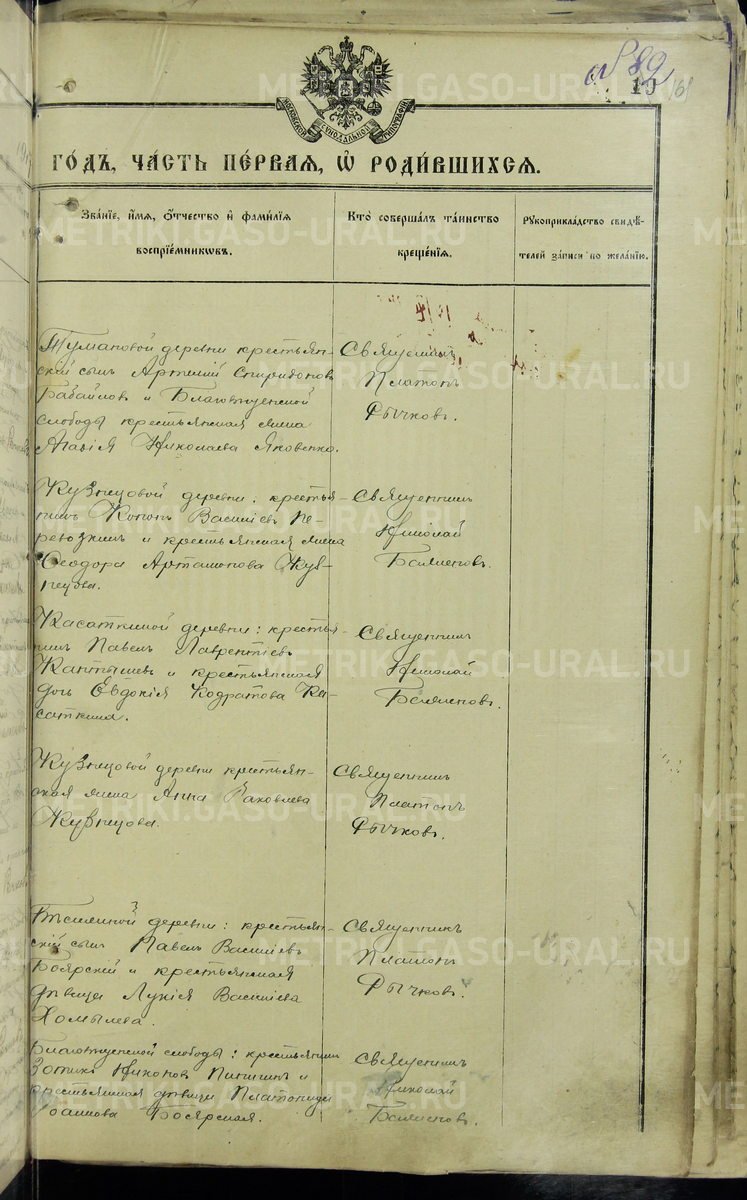 МОСКОВСКОЙ СѴНОДАЛЬНОЙ ТИПОГРАФІИ
№ 82
19
161
METRIKI.GASO-URAL.RU
ГОДЪ, ЧАСТЬ ПЕРВАЯ, Ѡ РОДИВШИХСЯ.
Званіе, имя, отчество и фамилія
воспріемниковъ.
Кто совершалъ таинство
крещенія.
Рукоприкладство свидѣ-
телей записи по желанію.
Тумановой деревни крестьян-
скій сынъ Артемій Спиридоновъ
Бабайловъ и Благовѣщенской
слободы крестьянская жена
Агафія Николаева Яковенко.
Священникъ
Платонъ
Рычковъ.
Кузнецовой деревни: крестья-
нинъ Кононъ Василіевъ Пе-
ревозкинъ и крестьянская жена
Ѳеодора Артамонова Куз-
нецова.
Священникъ
Николай
Касаткиной деревни: крестья-
нинъ Павелъ Лаврентіевъ
и крестьянская
дочь Евдокія Кодратова Ка-
саткина.
Священникъ
Николай
Кузнецовой деревни крестьян-
ская жена Анна Іаковлева
Кузнецова.
Священникъ
Платонъ
Рычковъ.
деревни: крестьян-
скій сынъ Павелъ Василіевъ
Боярскій и крестьянская
дѣвица Лукія Василіева
Хомылева.
Священникъ
Платонъ
Рычковъ.
Благовѣщенской слободы: крестьянинъ
Зотикъ Никоновъ и
крестьянская дѣвица Платонида
Іоаннова Боярская.
Священникъ
Николай